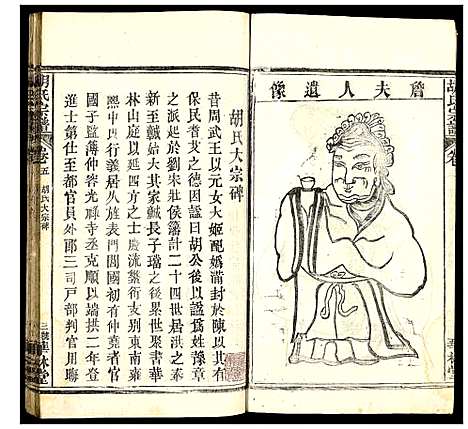 詹夫人遺像
胡氏宗譜
卷
胡氏大宗碑
昔周武王以元女大姬配嬀滿封於陳以其有
保民耆艾之德因諡曰胡公後以諡爲姓豫章
之派起於劉宋壯侯藩計二十四世居洪之奉
新至毓始大其家毓長子璫之後别束南雍
林山庭以延四方之士慶流繁衍詩書之華
熙中内行義居入旌表門閭初有仲堯者官
國子監簿仲容光祿寺丞克順以端拱二年登
進士第至都官員外郎三司戸部判官用晦
胡氏宗譜
卷五
胡氏大宗碑
華林堂